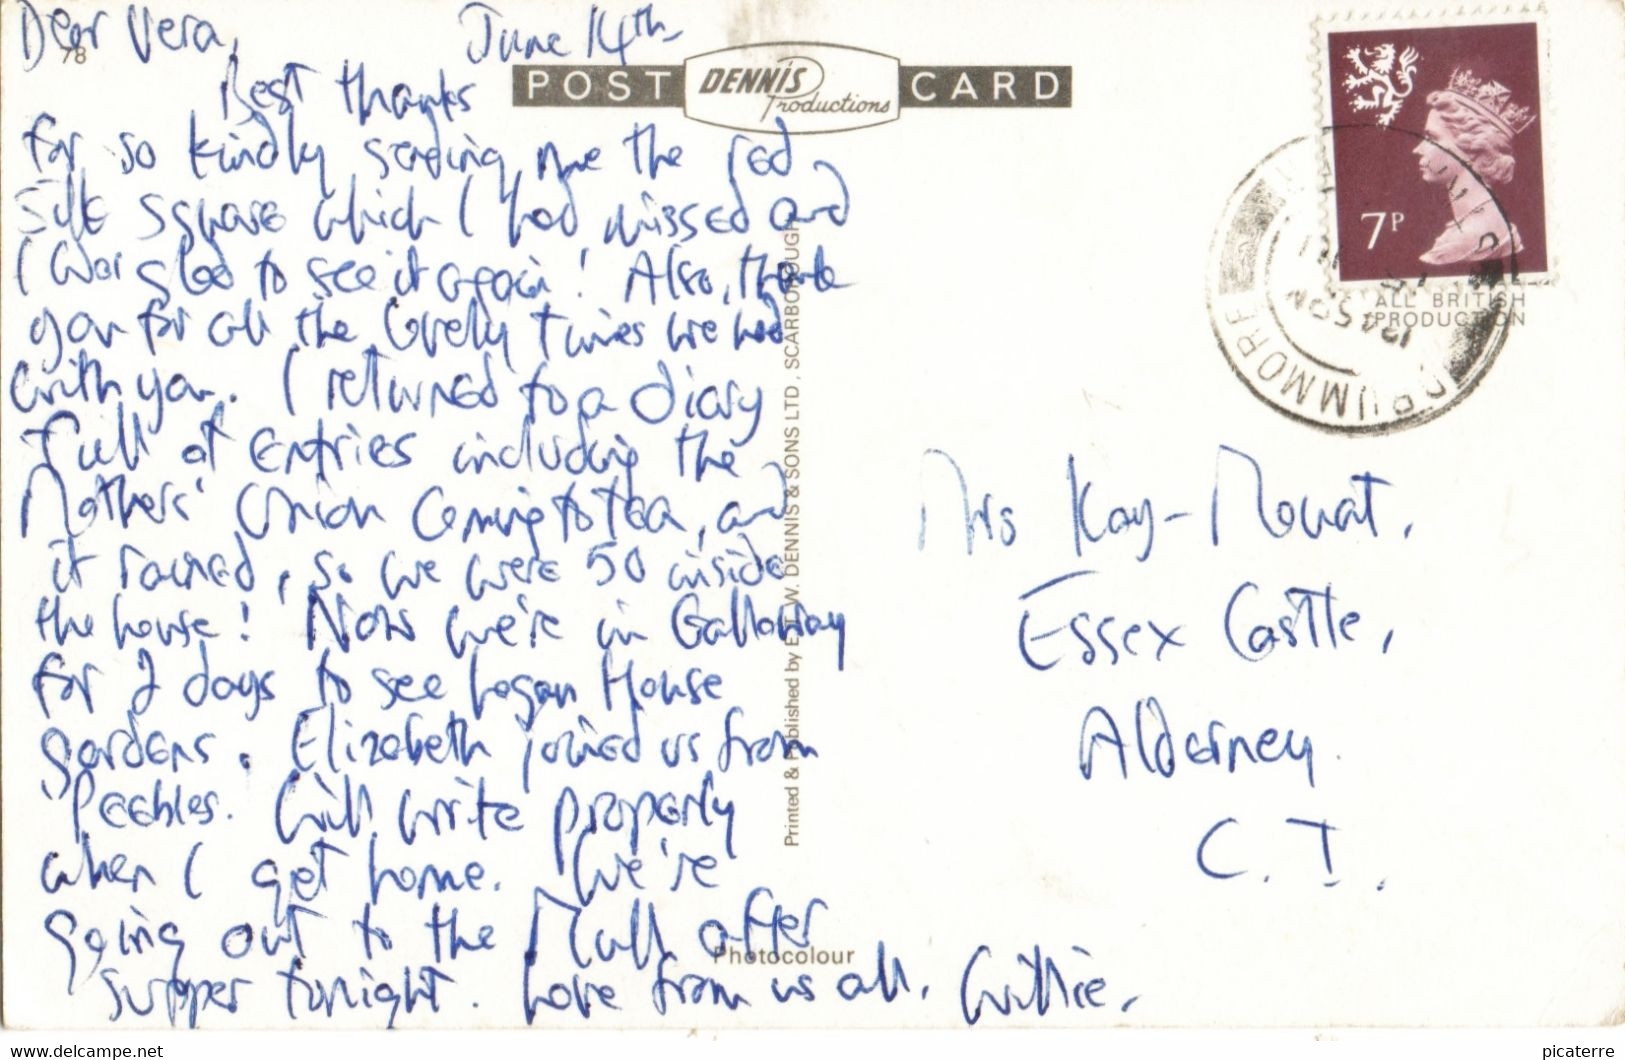 Dear Vera,
June 14th
78
POST DENNIS Productions CARD
Best thanks
for so kindly sending me the red
silk square which I had missed and
I was glad to see it again! Also, thank
you for all the lovely times we had
with you. I returned to a diary
full of entries including the
Mothers' Union coming to tea, and
it rained, so we were 50 inside
the house! Now we're in Galloway
for 2 days to see Logan House
gardens. Elizabeth joined us from
Peebles. Will write properly
when I get home. We're
going out to the Mull after
supper tonight. Love from us all. Willie.
Printed & Published by E.T.W. DENNIS & SONS LTD., SCARBOROUGH
Photocolour
7P
ALL BRITISH
PRODUCTION
DRUMMORE
Mrs Kay-Mouat,
Essex Castle,
Alderney
C.I.
www.delcampe.net
picaterre